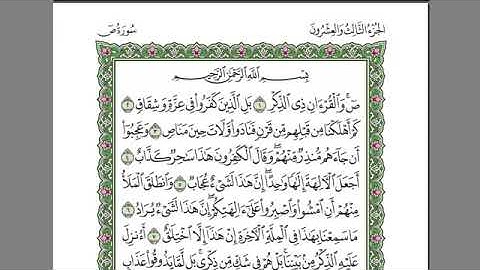 الجزء الثالث والعشرون
سورة ص
بسم الله الرحمن الرحيم
صٓ وَٱلْقُرْءَانِ ذِى ٱلذِّكْرِ ١ بَلِ ٱلَّذِينَ كَفَرُوا۟ فِى عِزَّةٍ وَشِقَاقٍ ٢
كَمْ أَهْلَكْنَا مِن قَبْلِهِم مِّن قَرْنٍ فَنَادَوا۟ وَّلَاتَ حِينَ مَنَاصٍ ٣ وَعَجِبُوٓا۟
أَن جَآءَهُم مُّنذِرٌ مِّنْهُمْ وَقَالَ ٱلْكَٰفِرُونَ هَٰذَا سَٰحِرٌ كَذَّابٌ ٤
أَجَعَلَ ٱلْءَالِهَةَ إِلَٰهًا وَٰحِدًا إِنَّ هَٰذَا لَشَىْءٌ عُجَابٌ ٥ وَٱنطَلَقَ ٱلْمَلَأُ
مِنْهُمْ أَنِ ٱمْشُوا۟ وَٱصْبِرُوا۟ عَلَىٰٓ ءَالِهَتِكُمْ إِنَّ هَٰذَا لَشَىْءٌ يُرَادُ ٦
مَا سَمِعْنَا بِهَٰذَا فِى ٱلْمِلَّةِ ٱلْءَاخِرَةِ إِنْ هَٰذَآ إِلَّا ٱخْتِلَٰقٌ ٧ أَءُنزِلَ
عَلَيْهِ ٱلذِّكْرُ مِنۢ بَيْنِنَا بَلْ هُمْ فِى شَكٍّ مِّن ذِكْرِى بَل لَّمَّا يَذُوقُوا۟ عَذَابِ